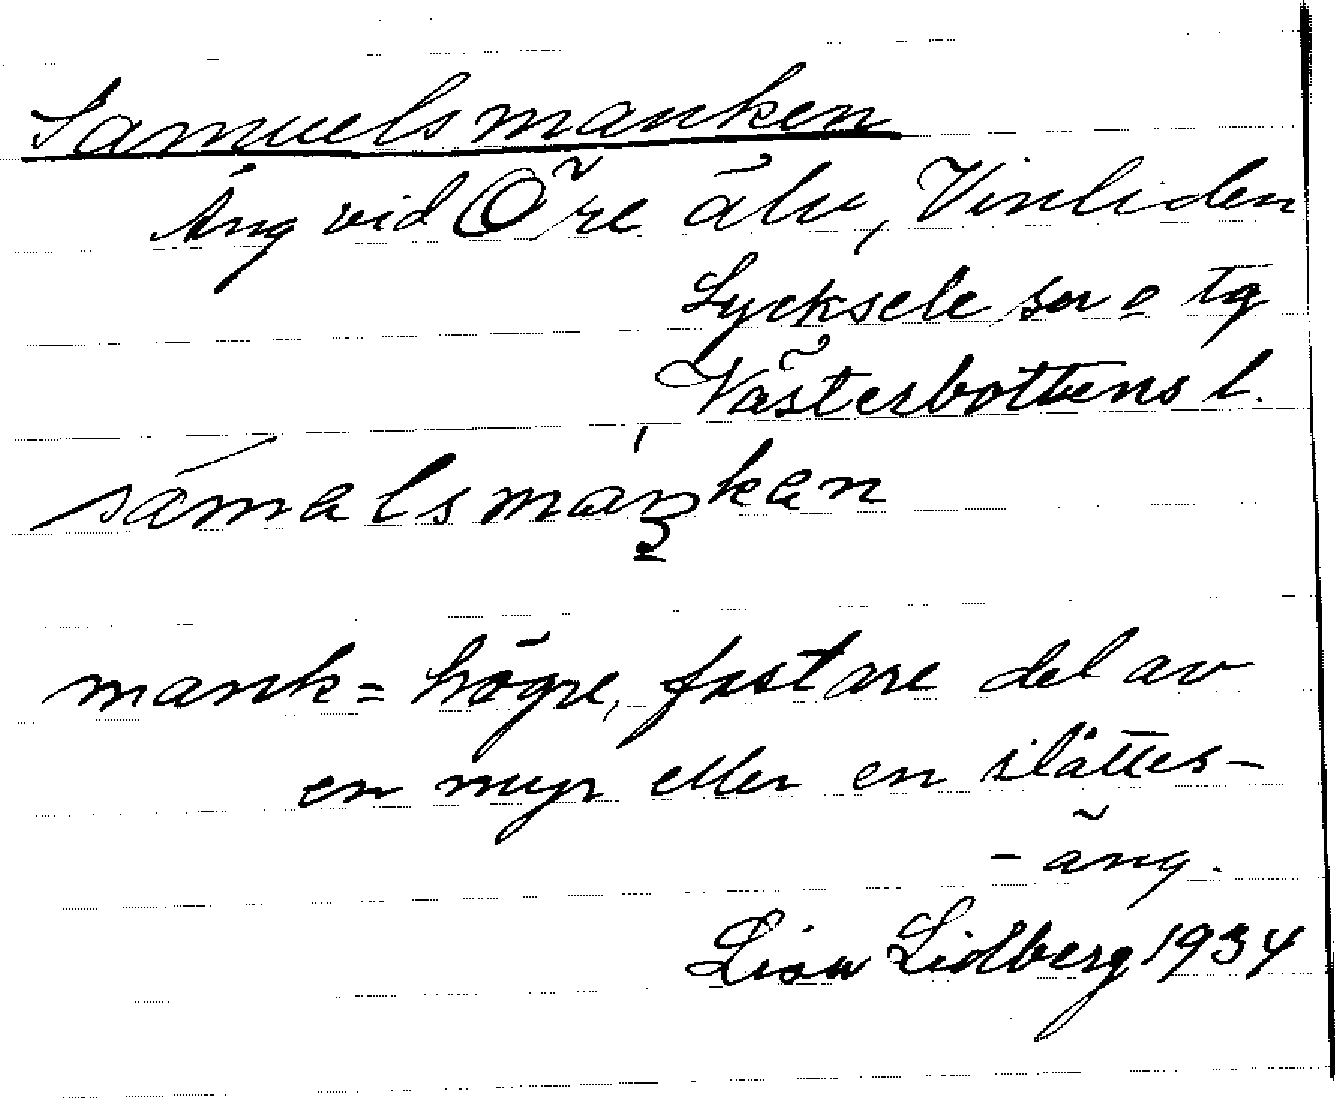 Samuelsmanken
Äng vid Öre älv, Vinliden
Lycksele sn o tg
Västerbottens l.
sámalsmaŋkan
mank = högre, fastare del av
en myr eller en slåttes-
- äng.
Lisa Lidberg 1934